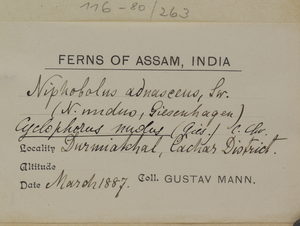 116-80/263
FERNS OF ASSAM, INDIA
Niphobolus adnascens, Sw.
(N. nudus, Giesenhagen)
Cyclophorus nudus (Gies.) C. Chr.
Locality Durmakhal, Cachar District.
Altitude
Date March 1887. Coll. GUSTAV MANN.